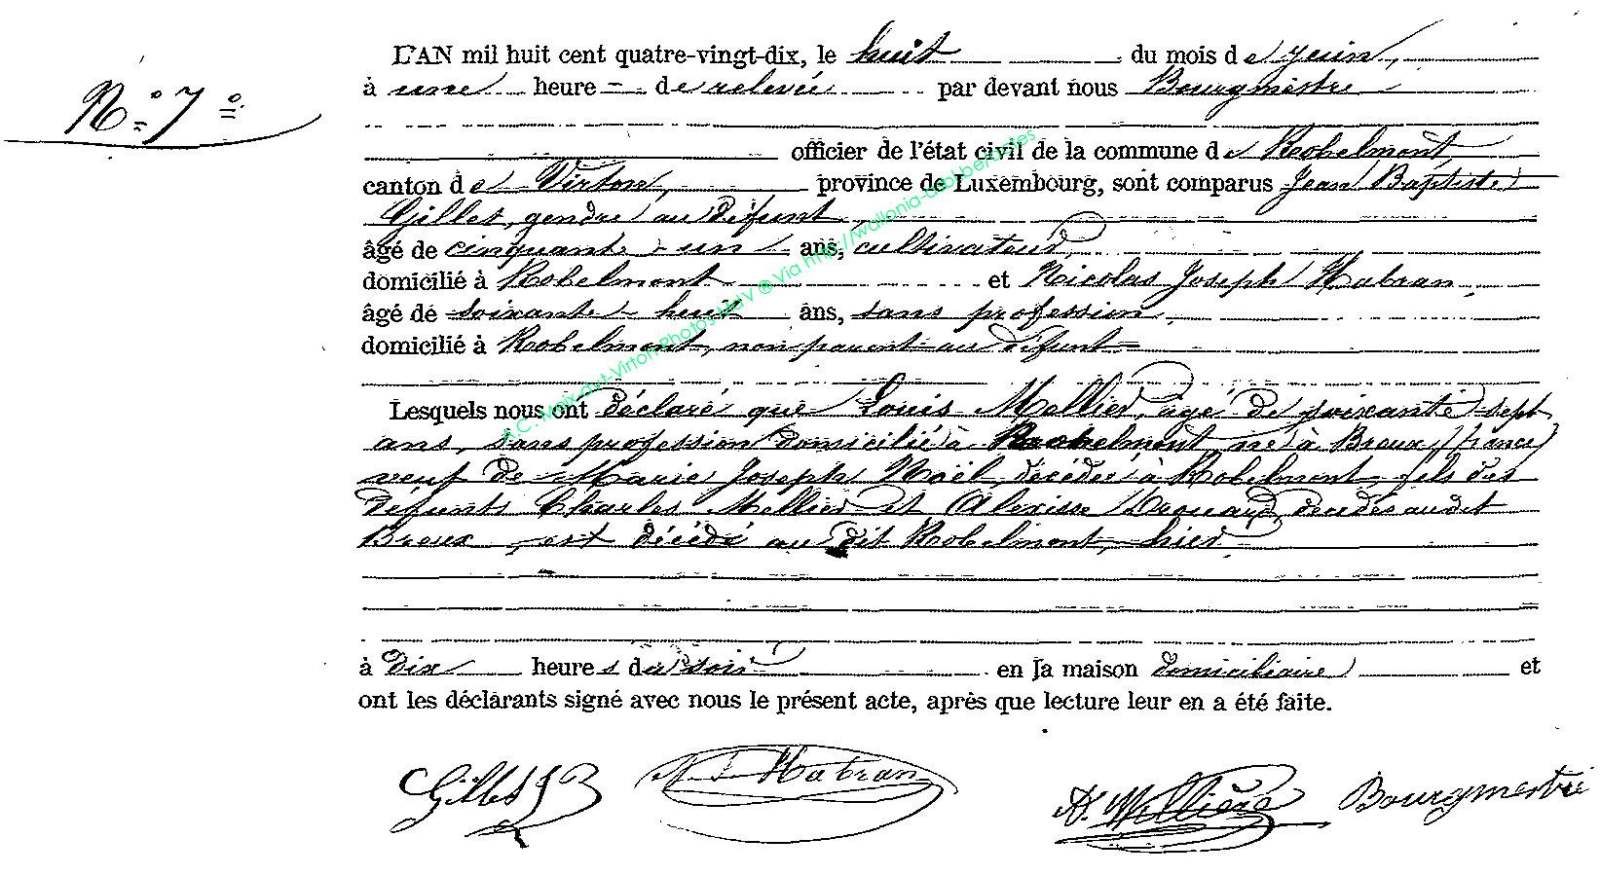 N° 7°
L'AN mil huit cent quatre-vingt-dix, le huit du mois de juin,
à une heure de relevée par devant nous Bourgmestre
officier de l'état civil de la commune de Robelmont,
canton de Virton, province de Luxembourg, sont comparus Jean Baptiste
Gillet, gendre au défunt,
âgé de cinquante-un ans, cultivateur,
domicilié à Robelmont et Nicolas Joseph Habran
âgé de soixante-huit ans, sans profession,
domicilié à Robelmont, non parent au défunt
Lesquels nous ont déclaré que Louis Mellier, âgé de soixante-sept
ans, sans profession domicilié à Robelmont, né à Breux, (france)
veuf de Marie Joseph Noël, décédée à Robelmont, fils des
défunts Charles Mellier et Alexisse Drouard, décédés audit
Breux, est décédé au dit Robelmont, hier,
à dix heures du soir en la maison domiciliaire et
ont les déclarants signé avec nous le présent acte, après que lecture leur en a été faite.
Gillet J B N J Habran Mellière Bourgmestre
A.C. Meix-dvt-Virton Photos MdV @ Via http://wallonia-asbl.be/actes